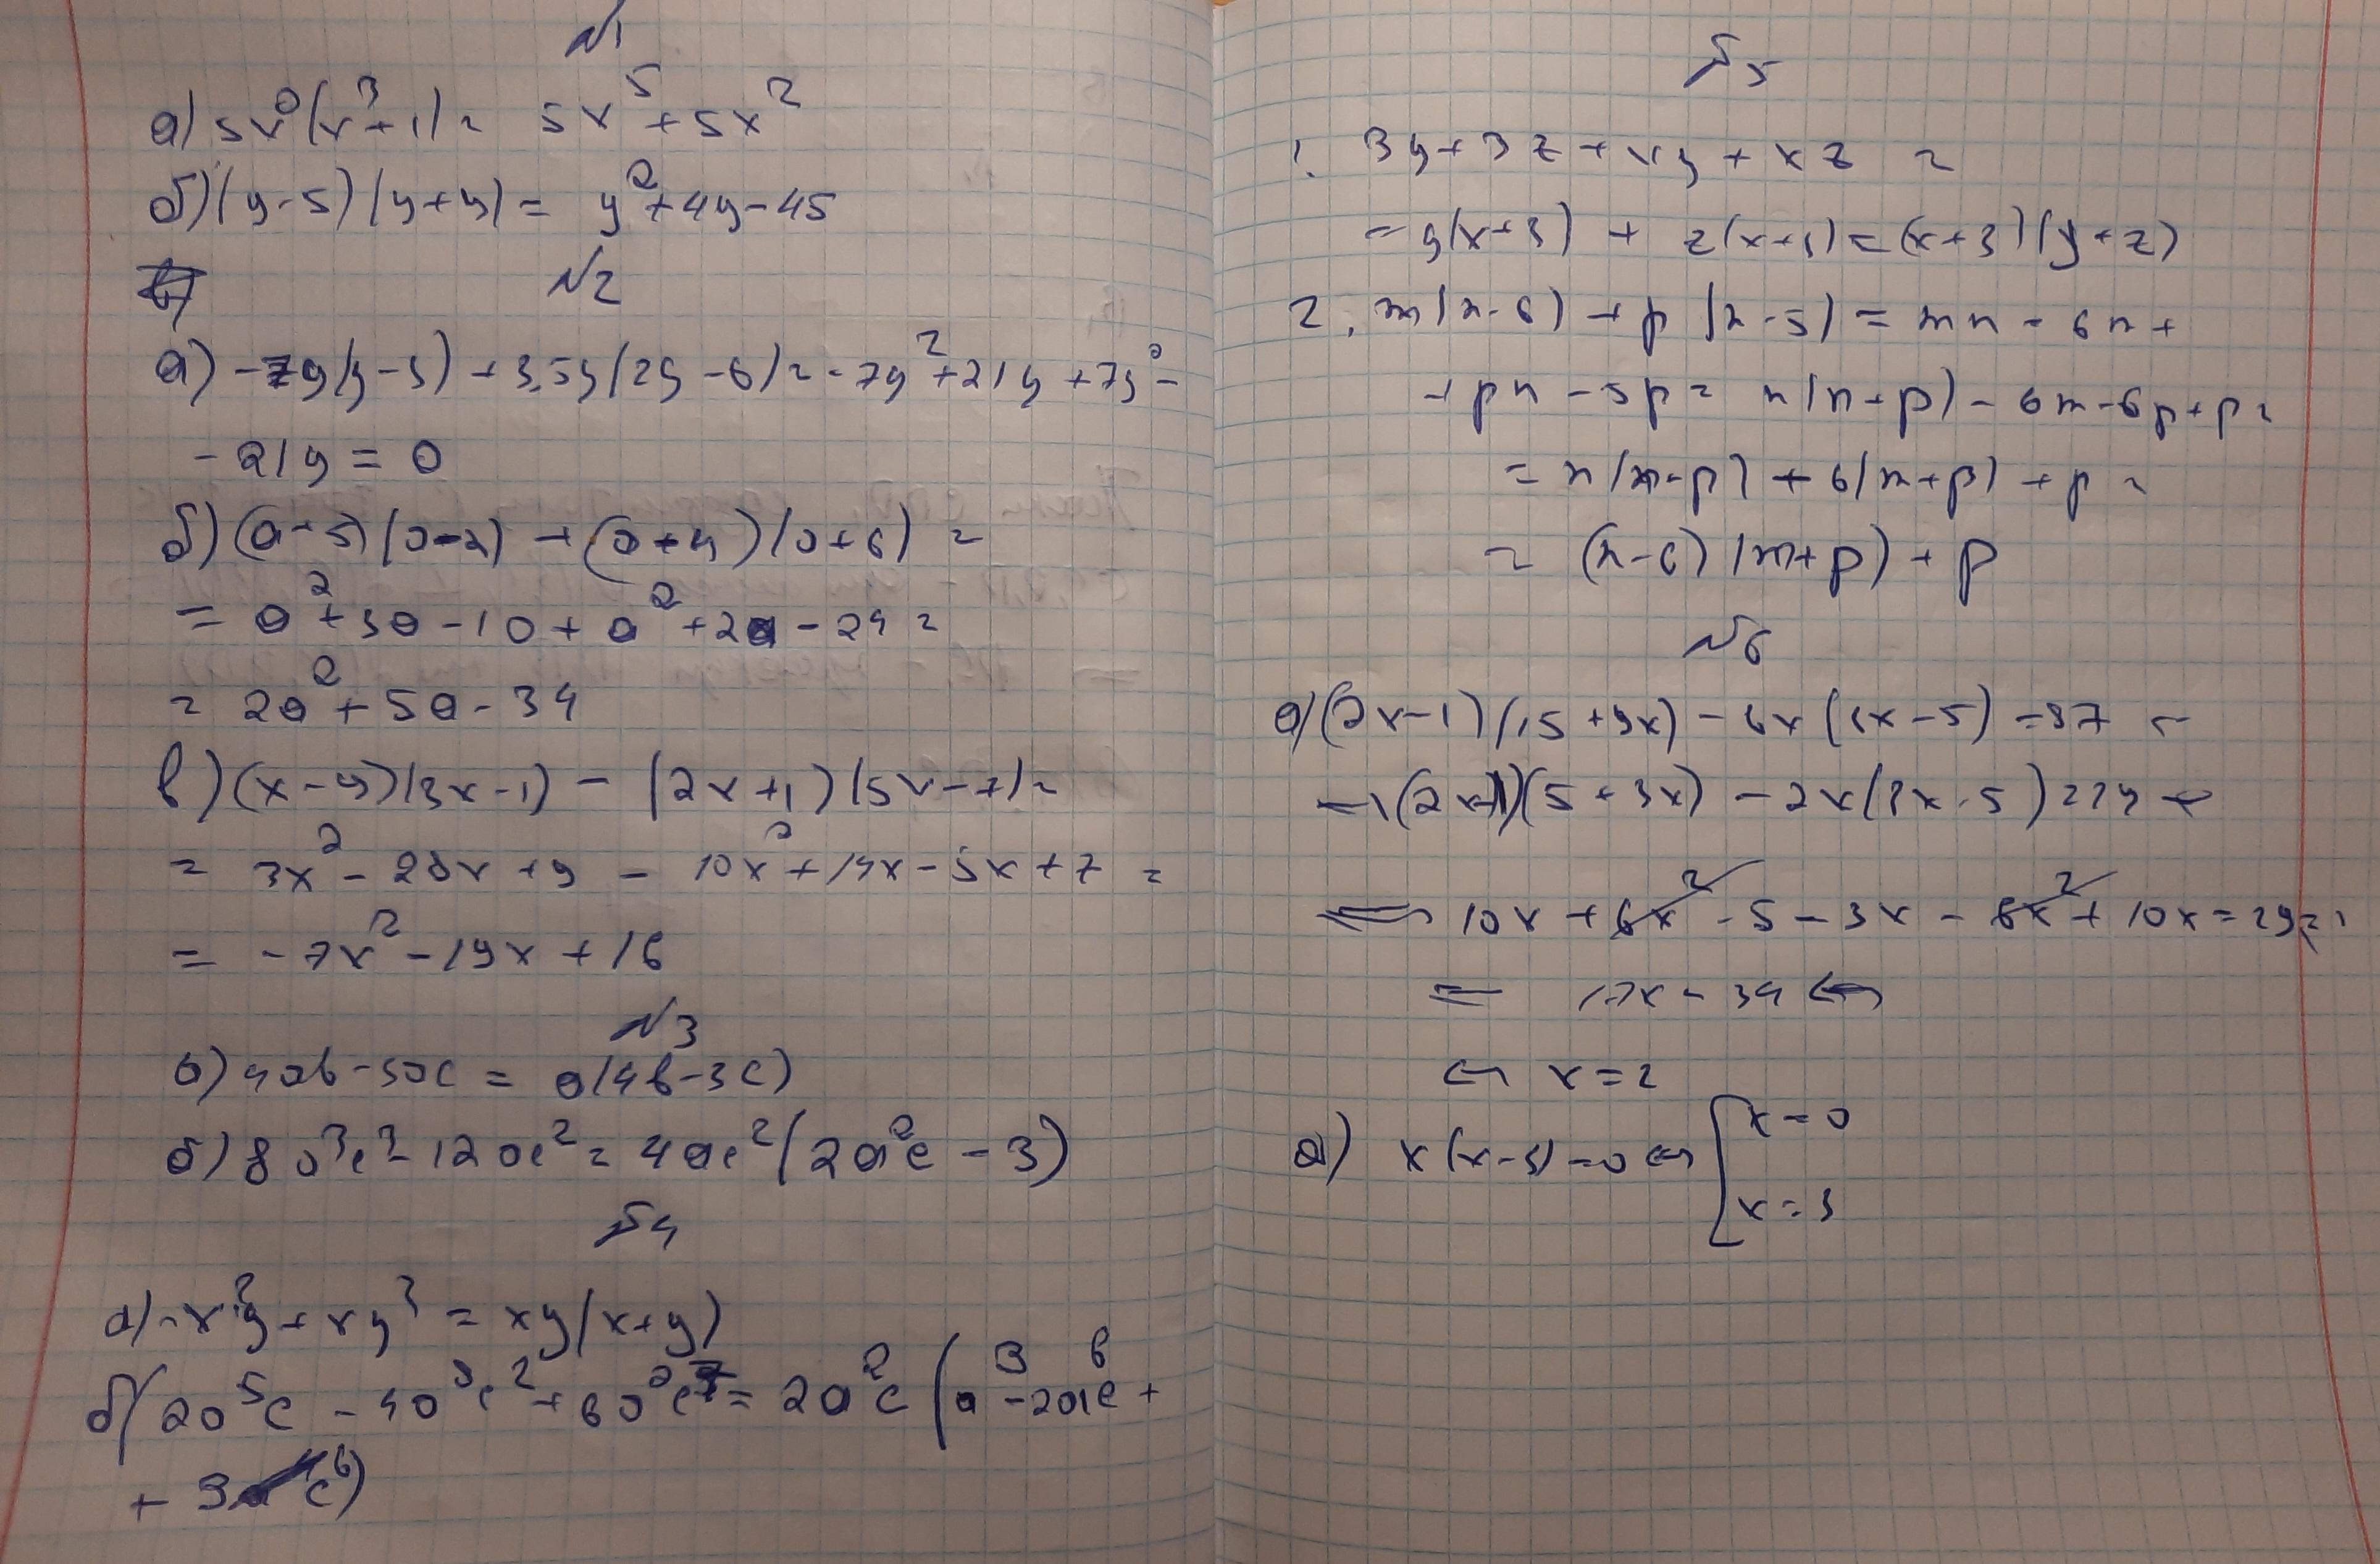 №1
а) 5x²(x³+1) = 5x⁵ + 5x²
б) (y-5)(y+9) = y²+4y-45
№2
а) -7y(y-3) + 3,5y(2y-6) = -7y²+21y+7y²-
-21y = 0
б) (a+5)(a-2) + (a-4)(a+6) =
= a²+3a-10+a²+2a-24 =
= 2a²+5a-34
в) (x-9)(3x-1) - (2x+1)(5x-7) =
= 3x²-28x+9 - 10x²+14x-5x+7 =
= -7x²-19x+16
№3
а) 4ab-3ac = a(4b-3c)
б) 8a³c³-12ac² = 4ac²(2a²c-3)
№4
= xy(x+y)
б) 2a⁵c - 4a³c² + 6a²c⁷ = 2a²c(a³-2ac+
+ 3c⁶)
№5
1. 3y+3z+xy+xz =
= y(x+3) + z(x+3) = (x+3)(y+z)
2. m(n-6) + p(n-5) = mn - 6m +
+ pn - 5p = n(m+p) - 6m-6p+p =
= n(m+p) + 6(m+p) + p =
= (n-6)(m+p) + p
№6
а) (2x-1)(15+9x) - 6x(3x-5) = 87 ⇔
⇔ (2x-1)(5+3x) - 2x(3x-5) = 29 ⇔
⇔ 10x + 6x² - 5 - 3x - 6x² + 10x = 29 ⇔
⇔ 17x = 34 ⇔
⇔ x = 2
а) x(x-3) = 0 ⇔ [x = 0
x = 3